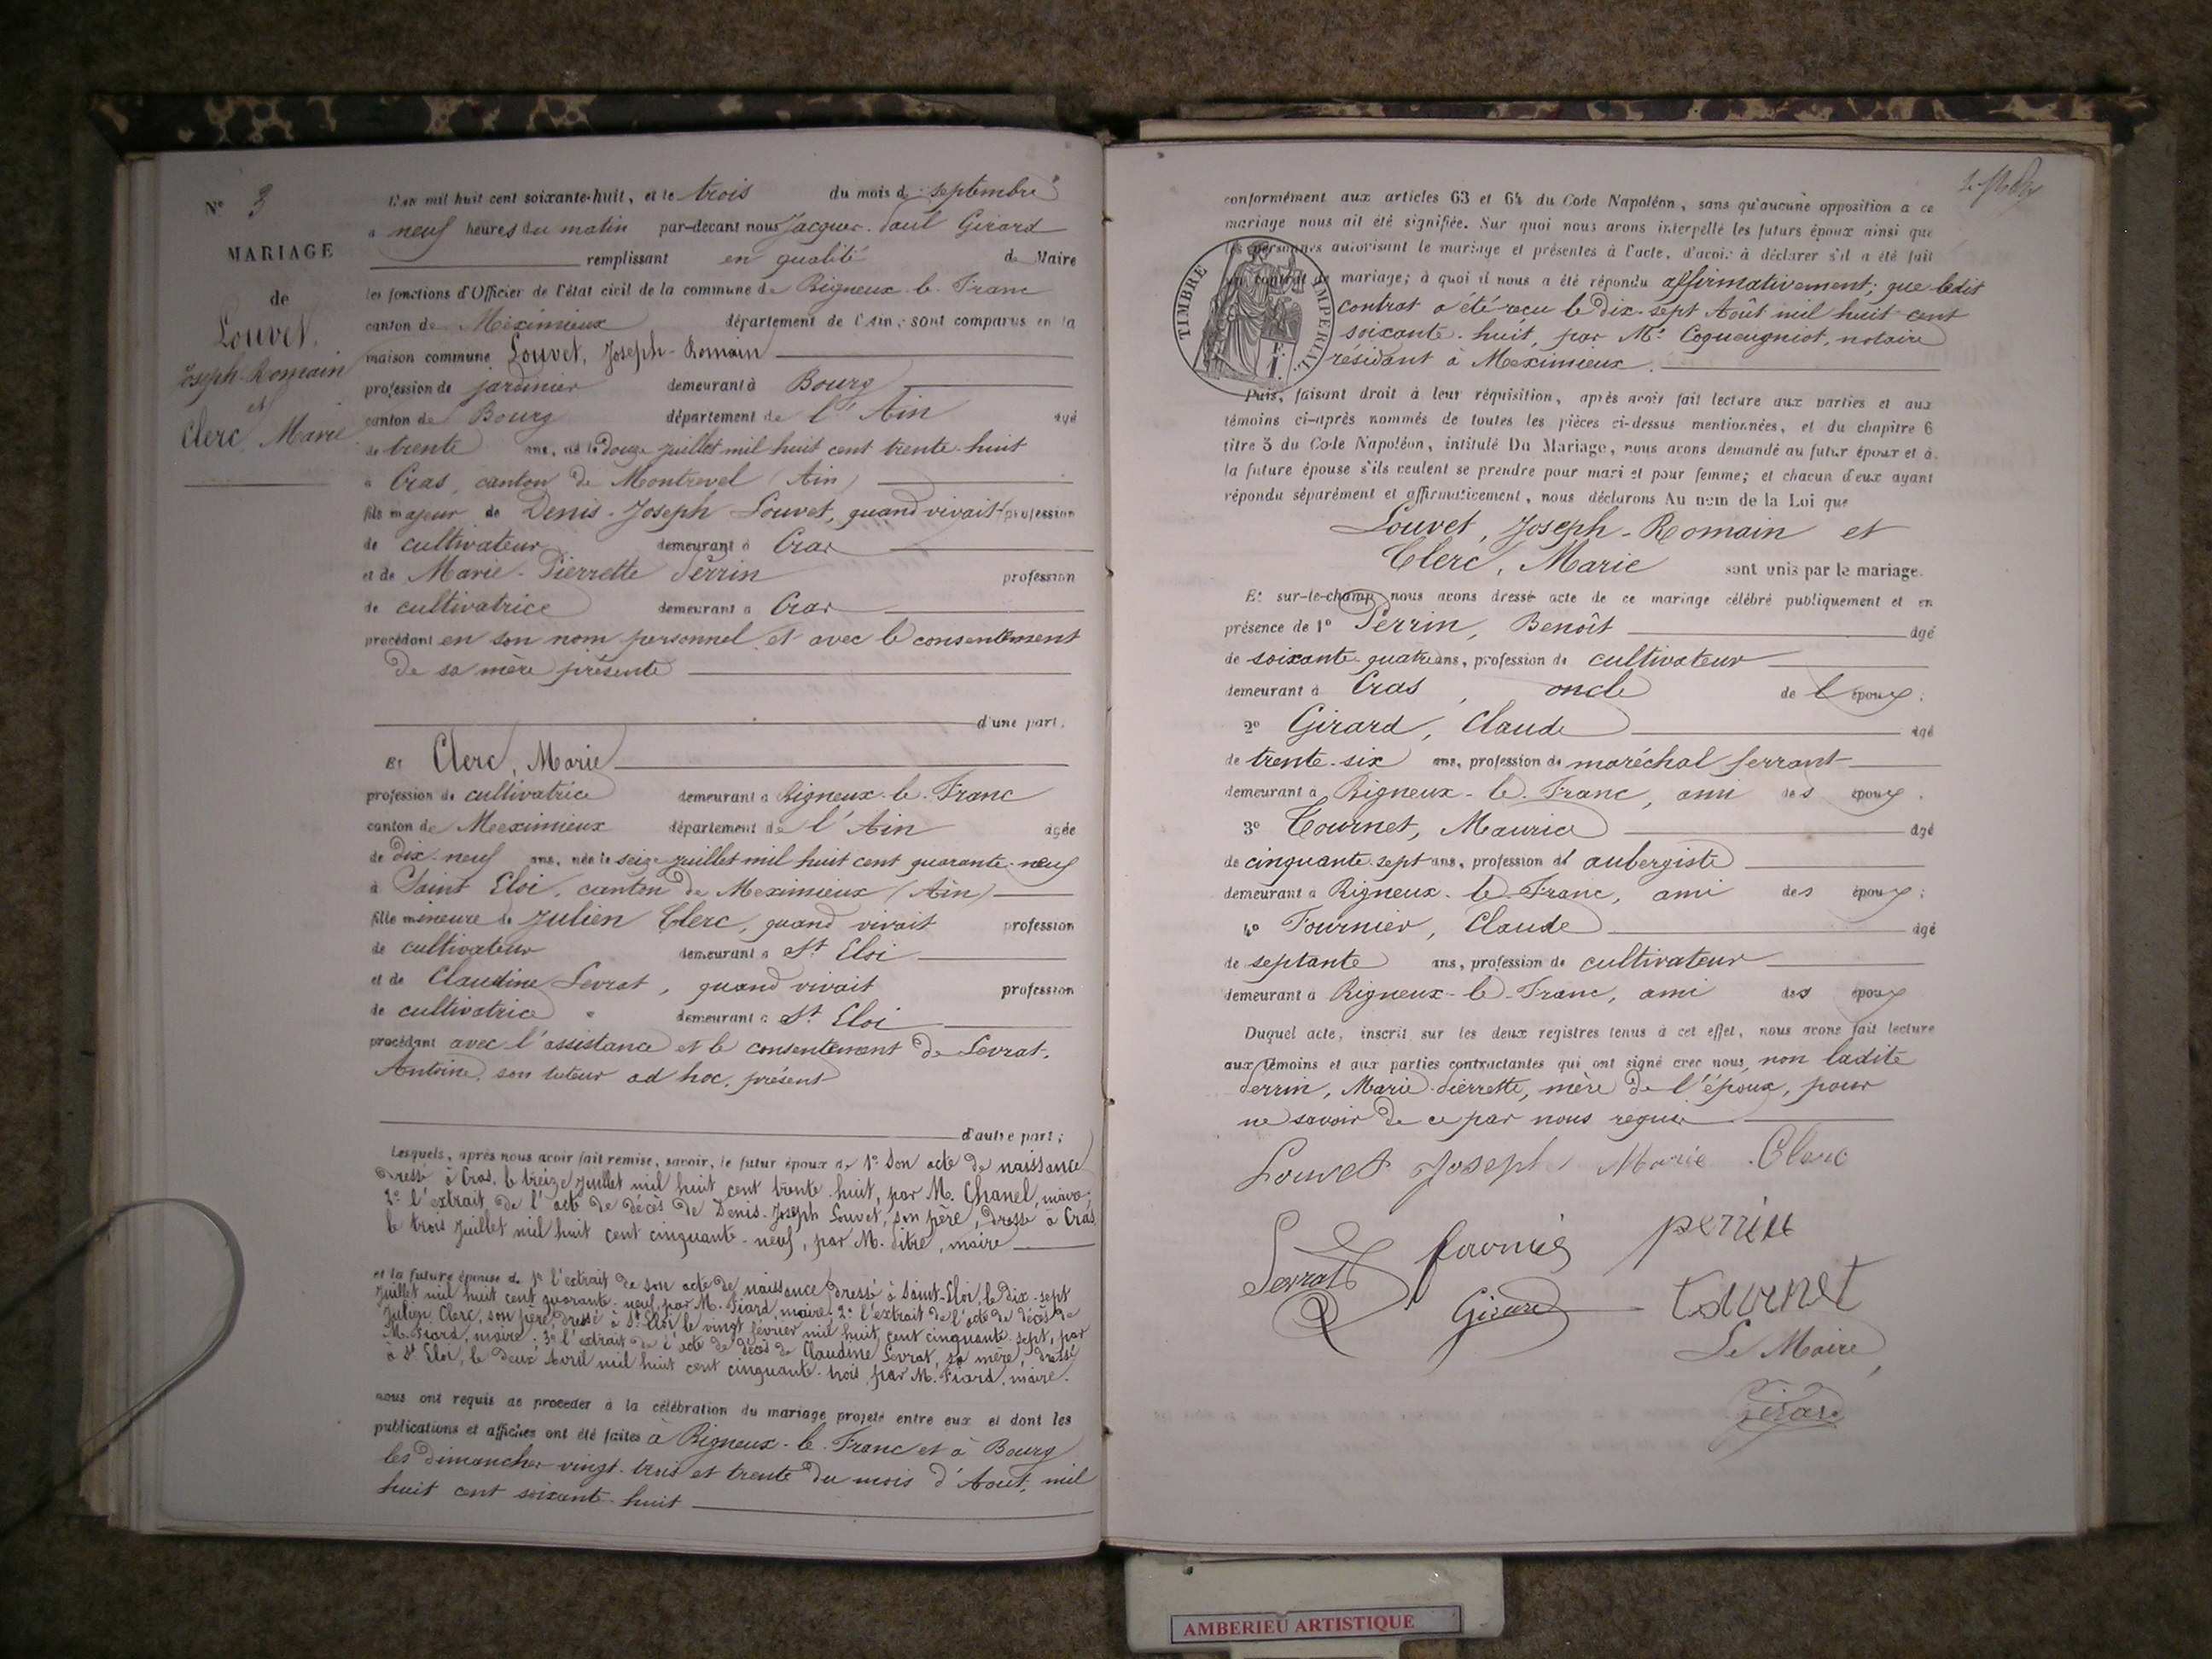 N° 3
MARIAGE
de
Louvet,
Joseph-Romain
et
Clerc, Marie
L'an mil huit cent soixante-huit, et le trois du mois de septembre
à neuf heures du matin par-devant nous Jacques-Paul Girard
remplissant en qualité de Maire
les fonctions d'Officier de l'état civil de la commune de Rigneux-le-Franc
canton de Méximieux département de l'Ain; sont comparus en la
maison commune Louvet, Joseph-Romain
profession de jardinier demeurant à Bourg
canton de Bourg département de l'Ain âgé
de trente ans, né le douze juillet mil huit cent trente-huit
à Cras, canton de Montrevel (Ain)
fils majeur de Denis-Joseph Louvet, quand vivait profession
de cultivateur demeurant à Cras
et de Marie-Pierrette Perrin profession
de cultivatrice demeurant à Cras
procédant en son nom personnel et avec le consentement
de sa mère présente
d'une part.
Et Clerc, Marie
profession de cultivatrice demeurant à Rigneux-le-Franc
canton de Meximieux département de l'Ain âgée
de dix-neuf ans, née le seize juillet mil huit cent quarante-neuf
à Saint Eloi, canton de Meximieux (Ain)
fille mineure de Julien Clerc, quand vivait profession
de cultivateur demeurant à St Eloi
et de Claudine Levrat, quand vivait profession
de cultivatrice demeurant à St Eloi
procédant avec l'assistance et le consentement de Levrat,
Antoine, son tuteur ad hoc, présent
d'autre part;
Lesquels, après nous avoir fait remise, savoir, le futur époux de 1° Son acte de naissance
dressé à Cras, le treize juillet mil huit cent trente-huit, par M. Chanel, maire;
2° l'extrait de l'acte de décès de Denis-Joseph Louvet, son père, dressé à Cras
le trois Juillet mil huit cent cinquante-neuf, par M. Pitre, maire
et la future épouse de 1° l'extrait de son acte de naissance dressé à Saint-Eloi, le dix-sept
juillet mil huit cent quarante-neuf, par M. Fiard, maire; 2° l'extrait de l'acte de décès de
Julien Clerc, son père, dressé à St Eloi, le vingt février mil huit cent cinquante-sept, par
M. Fiard, maire; 3° l'extrait de l'acte de décès de Claudine Levrat, sa mère, dressé
à St Eloi, le deux Avril mil huit cent cinquante-trois, par M. Fiard, maire.
nous ont requis de procéder à la célébration du mariage projeté entre eux et dont les
publications et affiches ont été faites à Rigneux-le-Franc et à Bourg
les dimanches vingt-trois et trente du mois d'Aout, mil
huit cent soixante-huit
conformément aux articles 63 et 64 du Code Napoléon, sans qu'aucune opposition à ce
mariage nous ait été signifiée. Sur quoi nous avons interpellé les futurs époux ainsi que
les personnes autorisant le mariage et présentes à l'acte, d'avoir à déclarer s'il a été fait
un contrat de mariage; à quoi il nous a été répondu affirmativement; que ledit
contrat a été reçu le dix-sept Août mil huit cent
soixante-huit, par Me Coqueugniot, notaire
résidant à Meximieux.
TIMBRE IMPÉRIAL
1 F.
Puis, faisant droit à leur réquisition, après avoir fait lecture aux parties et aux
témoins ci-après nommés de toutes les pièces ci-dessus mentionnées, et du chapitre 6
titre 5 du Code Napoléon, intitulé Du Mariage, nous avons demandé au futur époux et à
la future épouse s'ils veulent se prendre pour mari et pour femme; et chacun d'eux ayant
répondu séparément et affirmativement, nous déclarons Au nom de la Loi que
Louvet, Joseph-Romain et
Clerc, Marie sont unis par le mariage.
Et sur-le-champ nous avons dressé acte de ce mariage célébré publiquement et en
présence de 1° Perrin, Benoît âgé
de soixante-quatre ans, profession de cultivateur
demeurant à Cras, oncle de l'époux;
2° Girard, Claude âgé
de trente-six ans, profession de maréchal ferrant
demeurant à Rigneux-le-Franc, ami des époux.
3° Tournet, Maurice âgé
de cinquante-sept ans, profession d' aubergiste
demeurant à Rigneux-le-Franc, ami des époux;
4° Fournier, Claude âgé
de septante ans, profession de cultivateur
demeurant à Rigneux-le-Franc, ami des époux
Duquel acte, inscrit sur les deux registres tenus à cet effet, nous avons fait lecture
aux témoins et aux parties contractantes qui ont signé avec nous, non ladite
Perrin, Marie-Pierrette, mère de l'époux, pour
ne savoir de ce par nous requise
Louvet Joseph Marie Clerc
Levrat fournié perrin
Girard tournet
Le Maire,
Girard
AMBERIEU ARTISTIQUE